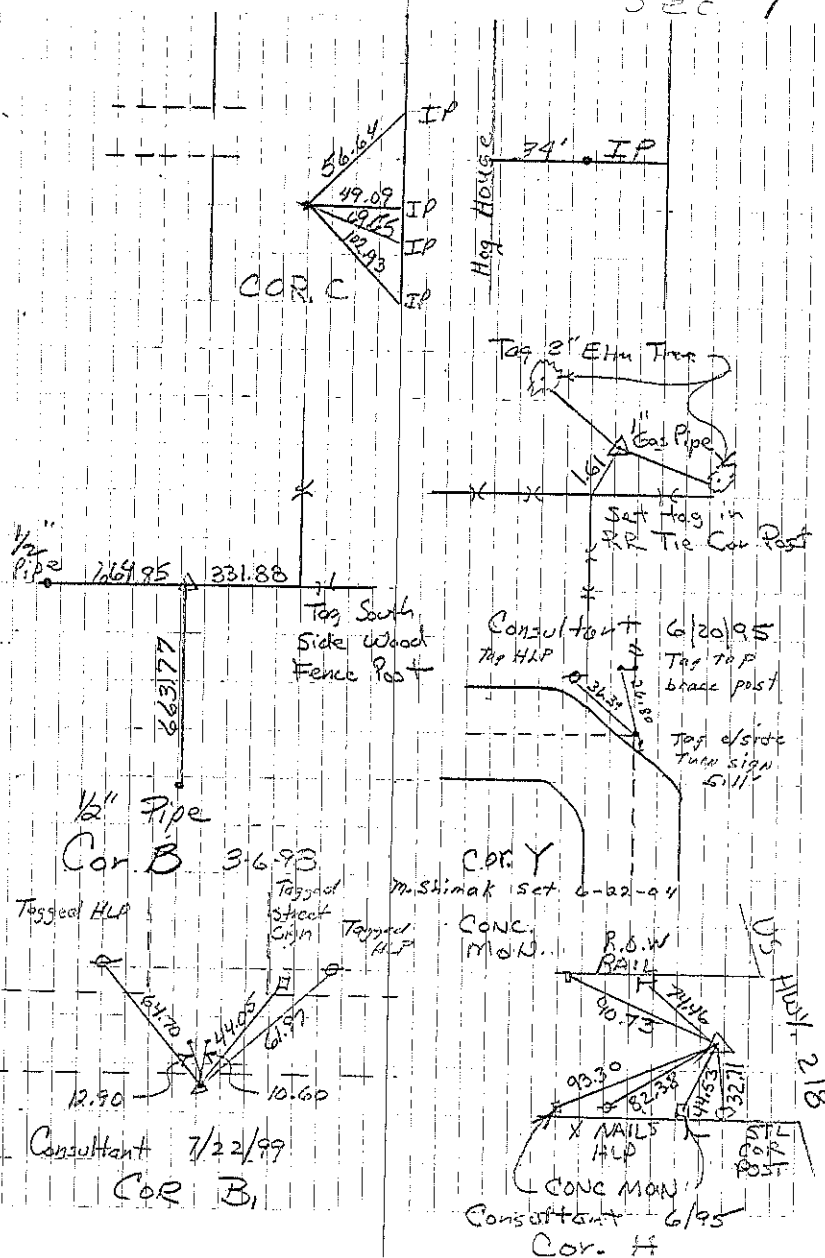 Sec 7
IP
56.64
49.09
IP
69.65
IP
102.93
IP
COR. C
Hog House
34'
IP
Tag 2" Elm Tree
1" Gas Pipe
1.61
Set tag in
RR Tie Cor Post
1/2"
Pipe
331.88
Tag South
Side Wood
Fence Post
663.77
1/2" Pipe
Cor. B 3-6-93
Consultant 6/20/95
Tag HLP
Tag top
brace post
36.39
26.80
Tag e/side
Turn sign
5.11
Cor. Y
M. Shimak set 6-22-94
Tagged HLP
Tagged
Street
Sign
Tagged
HLP
64.70
44.05
61.97
12.90
10.60
Consultant 7/22/99
COR B1
CONC.
MON.
R.O.W
RAIL
US HWY. 218
74.46
90.73
93.30
82.38
44.53
32.71
X NAILS
HLP
STL
COR
POST
CONC MON
Consultant 6/95
Cor. H